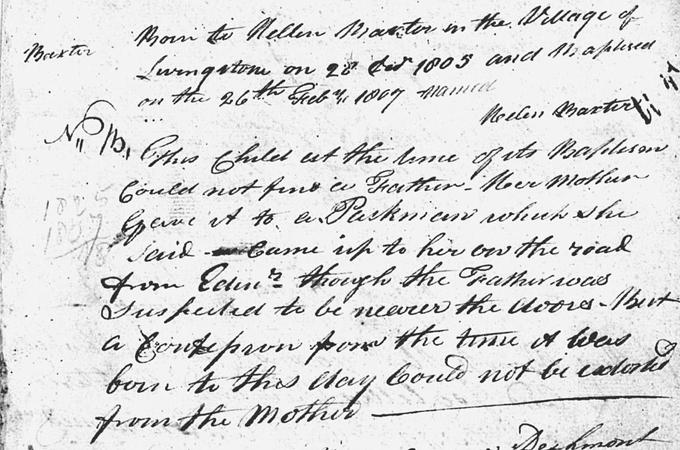 Baxter
Born to Hellen Baxter in the Village of
Livingstone on 28 Oct 1805 and Baptised
on the 26th Feby 1807 Named
Helen Baxter
N.B.
This Child at the time of its Baptism
Could not find a Father - Her Mother
Gave it to a Packman which she
Said Came up to her on the road
from Edinr. though the Father was
Suspected to be nearer the doors - But
a Confession from the time it was
born to this day Could not be extorted
from the Mother
Dechmont